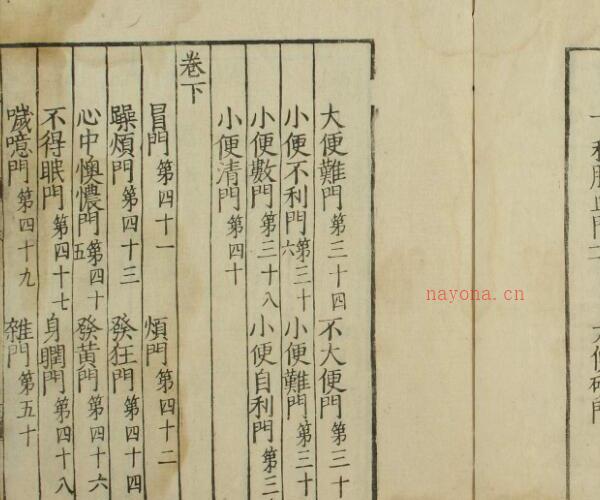 大便難門第三十四 不大便門第三十
小便不利門第三十六 小便難門第三十
小便數門第三十八 小便自利門第三
小便清門第四十
卷下
冒門第四十一 煩門第四十二
躁煩門第四十三 發狂門第四十四
心中懊憹門第四十五 發黃門第四十六
不得眠門第四十七 身瞤門第四十八
噦噫門第四十九 雜門第五十
nayona.cn